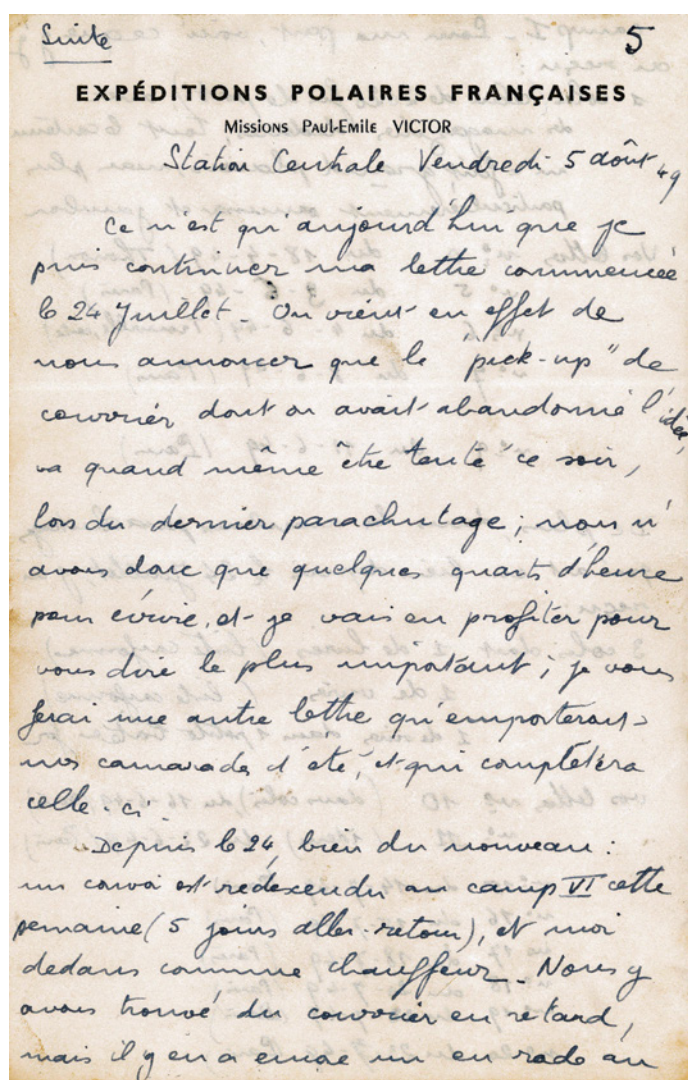 Suite 5
EXPÉDITIONS POLAIRES FRANÇAISES
Missions Paul-Emile VICTOR
Station Centrale Vendredi 5 août 49
Ce n'est qu'aujourd'hui que je
puis continuer ma lettre commencée
le 24 Juillet - On vient en effet de
nous annoncer que le "pick-up" de
courrier dont on avait abandonné l'idée,
va quand même être tenté ce soir,
lors du dernier parachutage ; nous n'
avons donc que quelques quarts d'heure
pour écrire, et je vais en profiter pour
vous dire le plus important ; je vous
ferai une autre lettre qu'emporteront
nos camarades d'été, et qui complètera
celle-ci.
Depuis le 24, bien du nouveau :
un convoi est redescendu au camp VI cette
semaine (5 jours aller-retour), et moi
dedans comme chauffeur - Nous y
avons trouvé du courrier en retard,
mais il y en a encore un en rade au